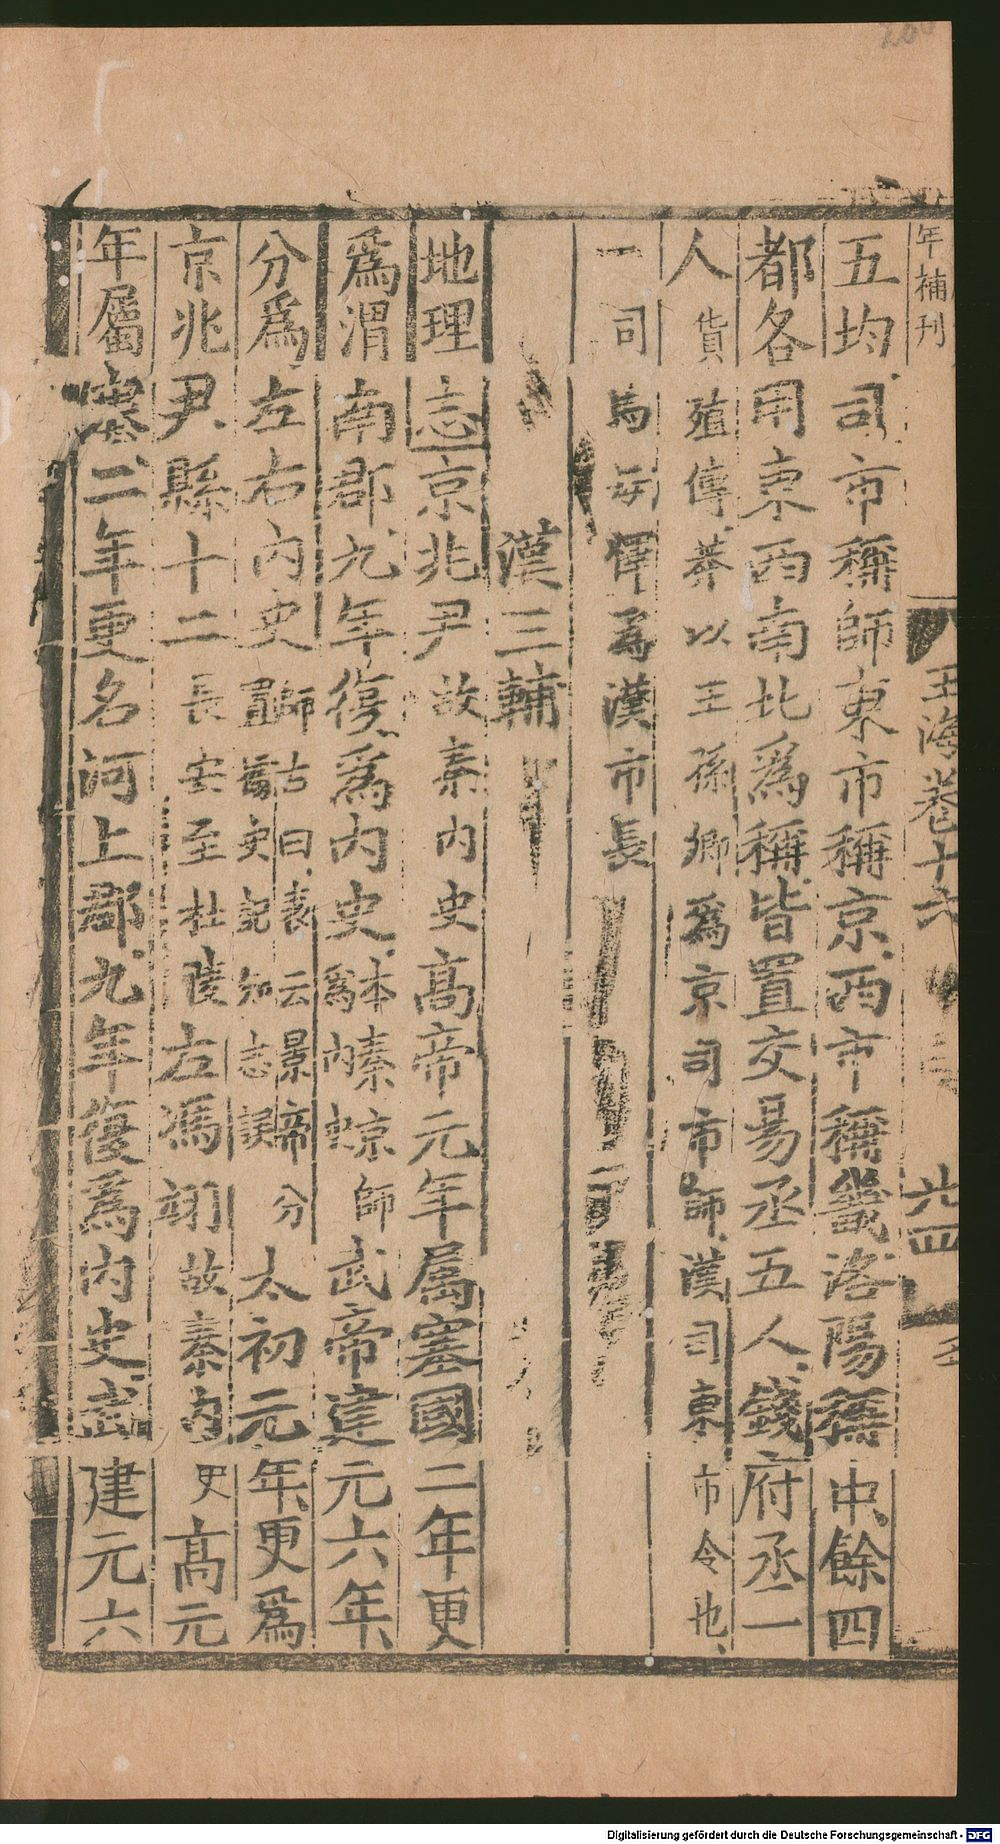 年補刊
玉海卷十六
廿四
五均司市稱師東市稱京西市稱畿洛陽稱中餘四
都各用東西南北爲稱皆置交易丞五人錢府丞一
人貨殖傳莽以王孫卿爲京司市師漢司東市令也
一司馬毋懌爲漢市長
漢三輔
地理志京兆尹故秦内史高帝元年屬塞國二年更
爲渭南郡九年復爲内史本秦京師爲内史武帝建元六年
分爲左右内史師古曰表云景帝分置而史記知志誤太初元年更爲
京兆尹縣十二長安至杜陵左馮翊故秦内史高元
年屬塞二年更名河上郡九年復爲内史武建元六
Digitalisierung gefördert durch die Deutsche Forschungsgemeinschaft - DFG